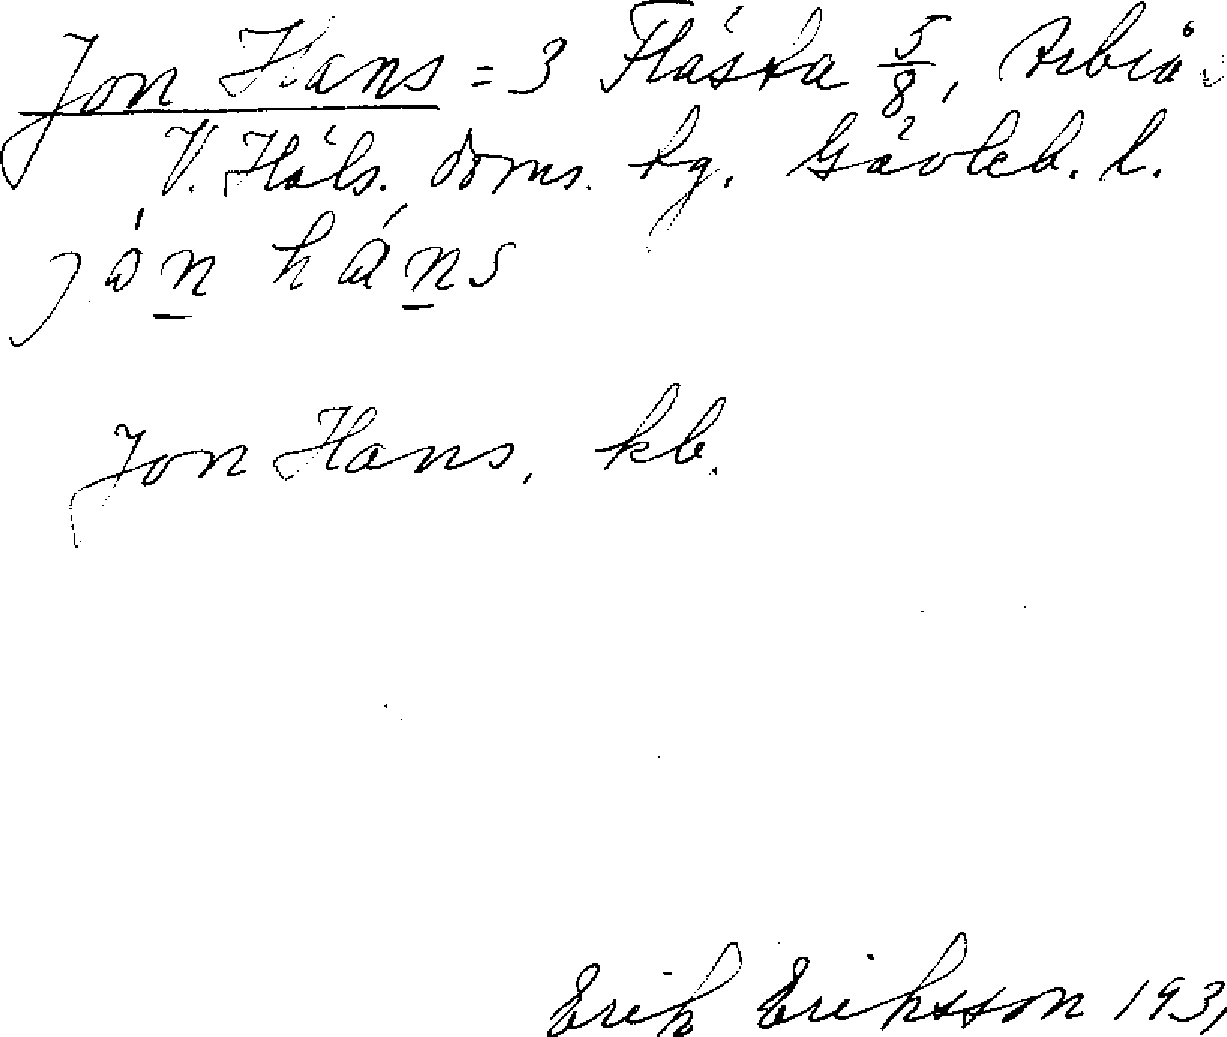 Jon Hans = 3 Flästa 5/8, Arbrå
V. Häls. doms. tg. Gävleb. l.
jón háns
Jon Hans, kb.
Erik Eriksson 193